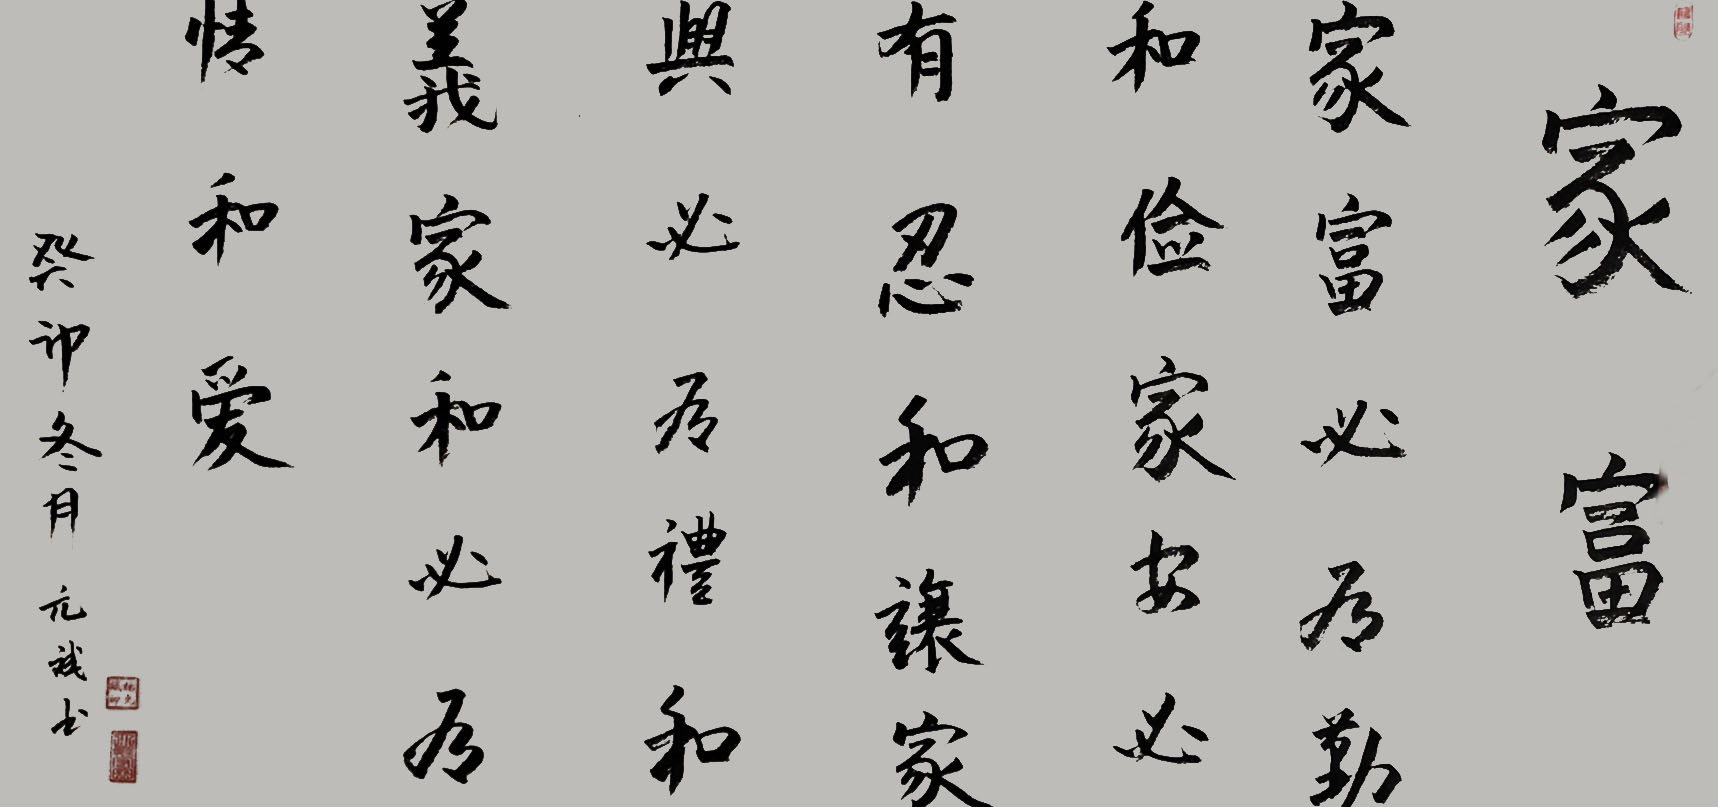 家富
家富必有勤
和俭家安必
有忍和讓家
興必有禮和
義家和必有
情和爱
癸卯冬月 元 书